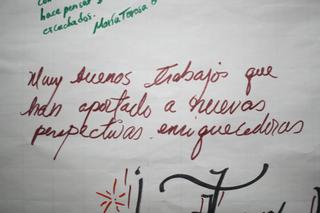 hace pensar
escuchados.
María Teresa
Muy buenos trabajos que
han aportado a nuevas
perspectivas enriquecedoras